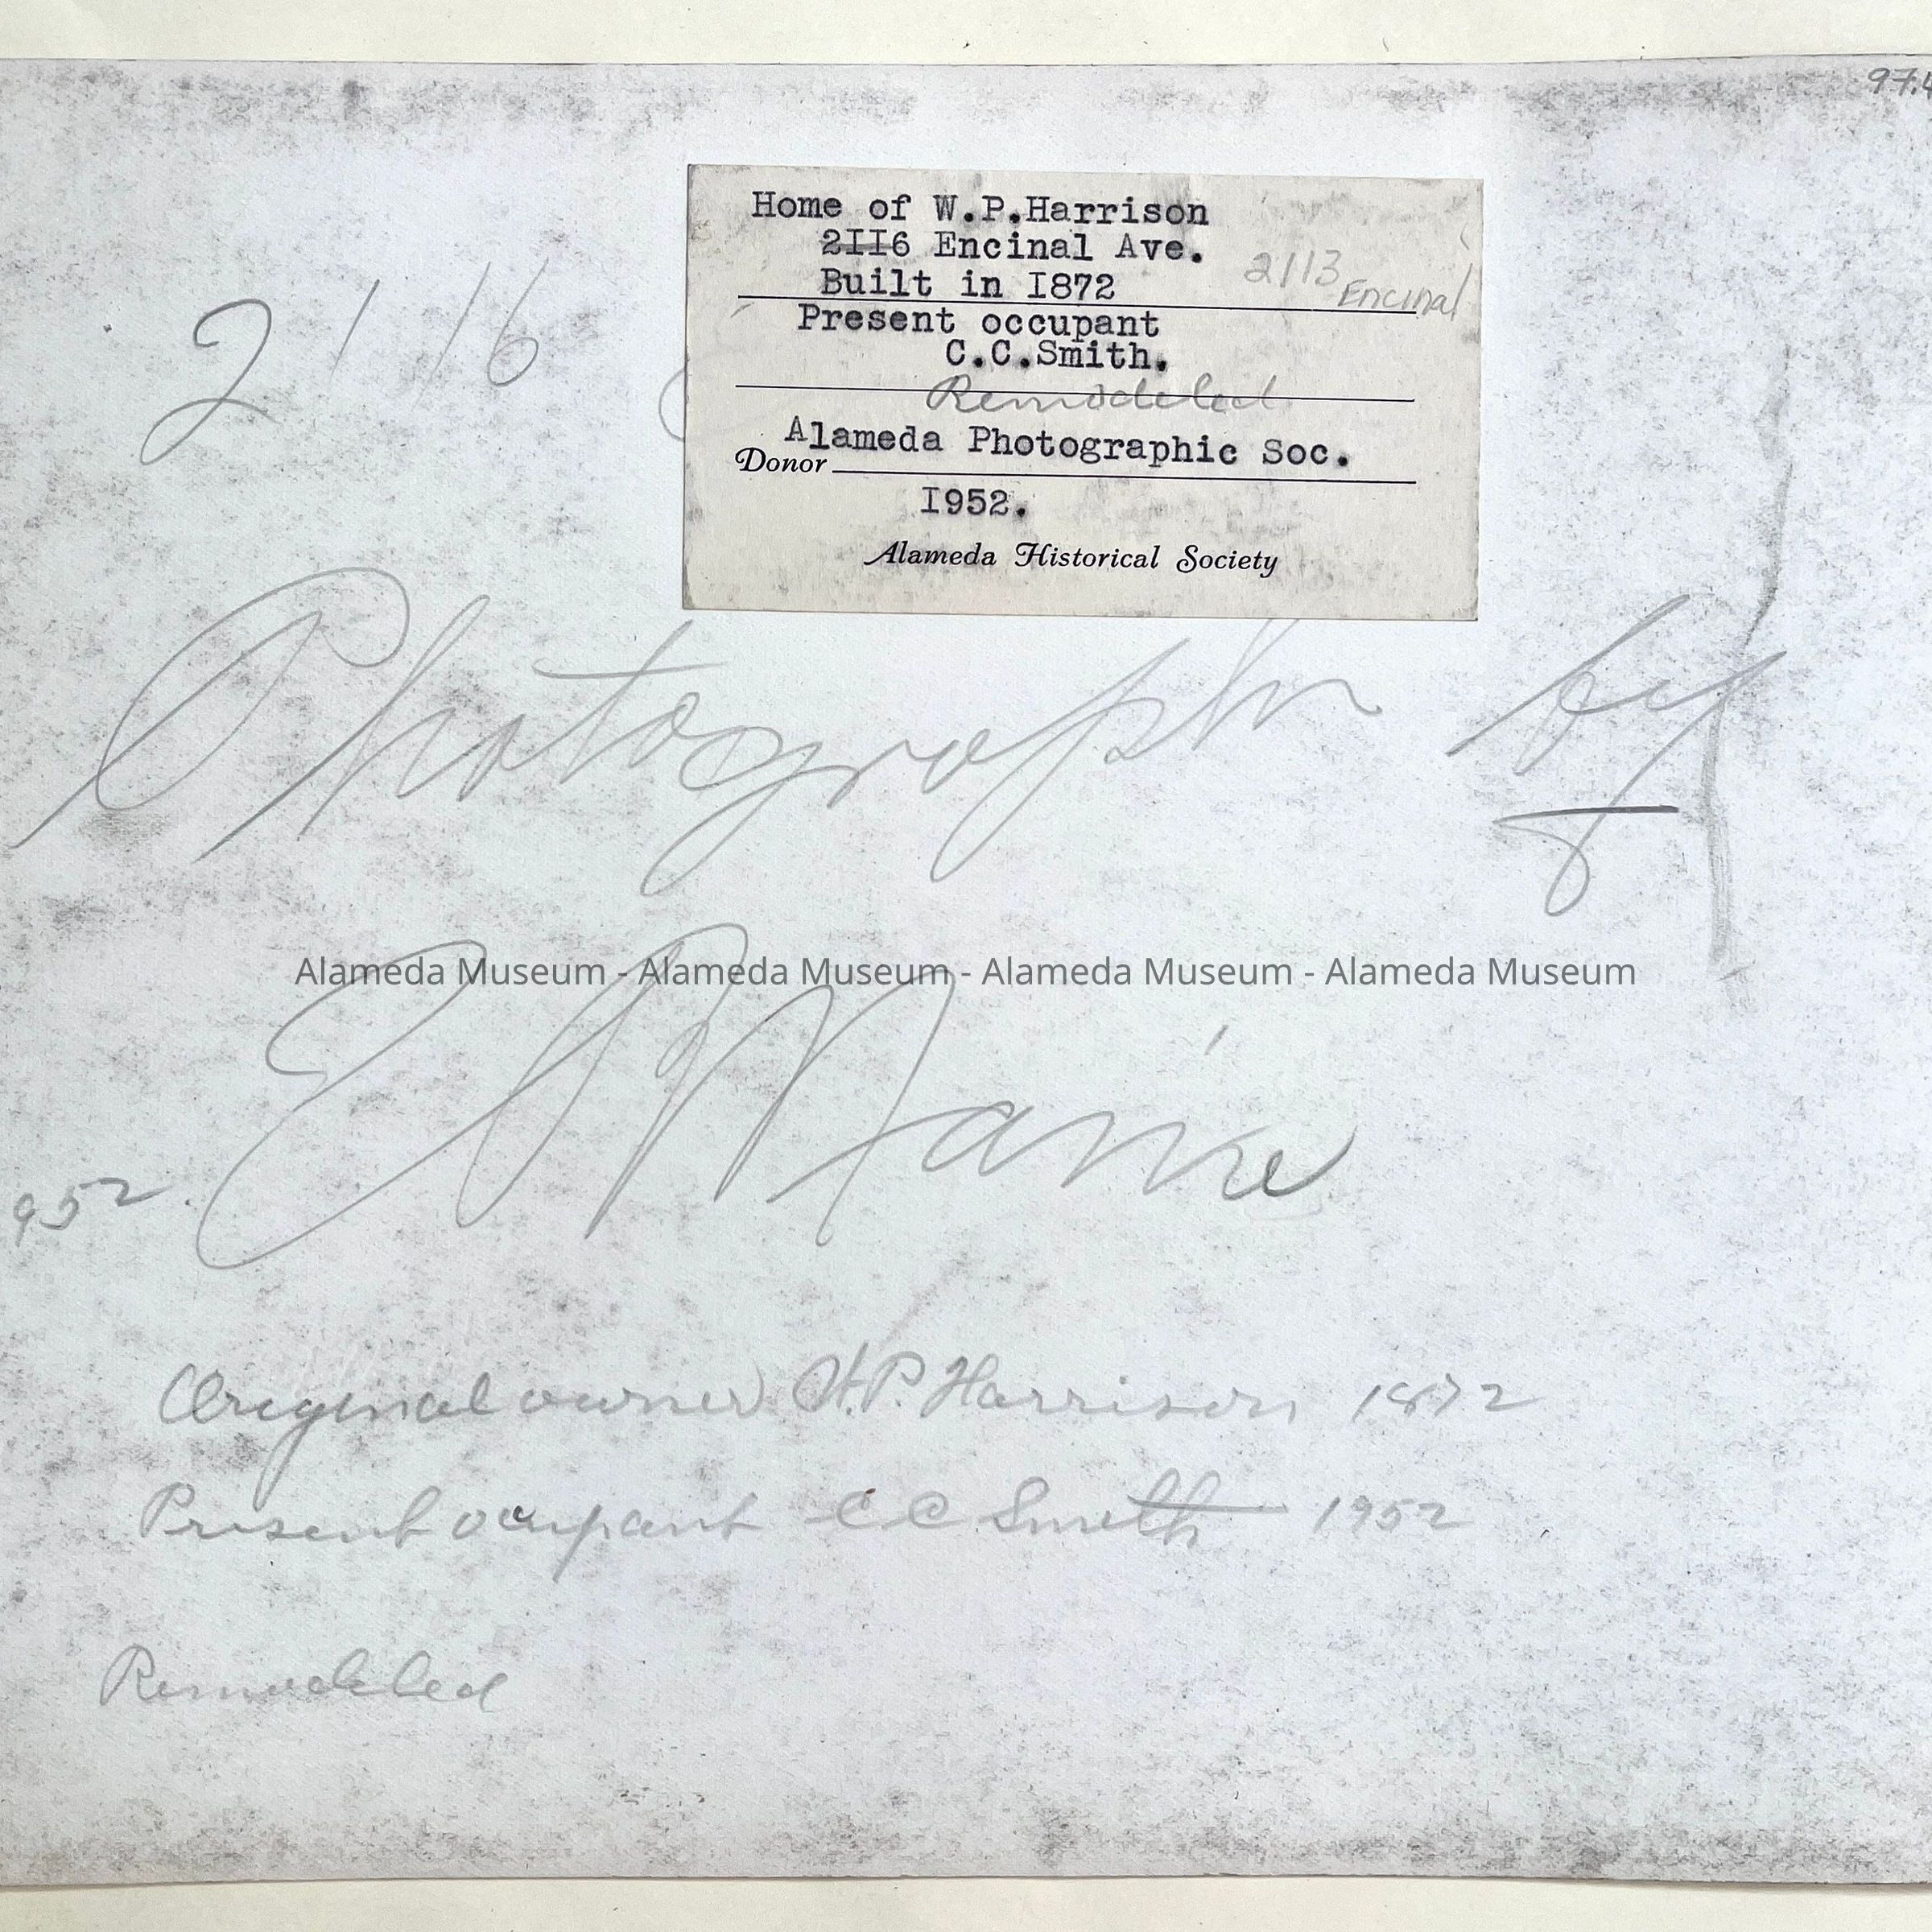 97.4
Home of W.P.Harrison
2II6 Encinal Ave.
2113 Encinal
Built in I872
Present occupant
C.C.Smith.
Remodeled
Alameda Photographic Soc.
Donor
I952.
Alameda Historical Society
2116
Photograph by
Alameda Museum - Alameda Museum - Alameda Museum - Alameda Museum
952.
Original owner W.P. Harrison 1872
Present occupant C C Smith 1952
Remodeled